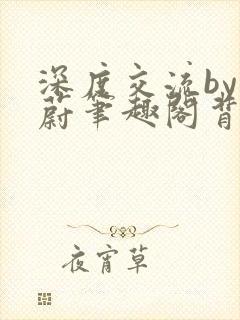 深度交流by
蔚笔趣阁背
夜宵草